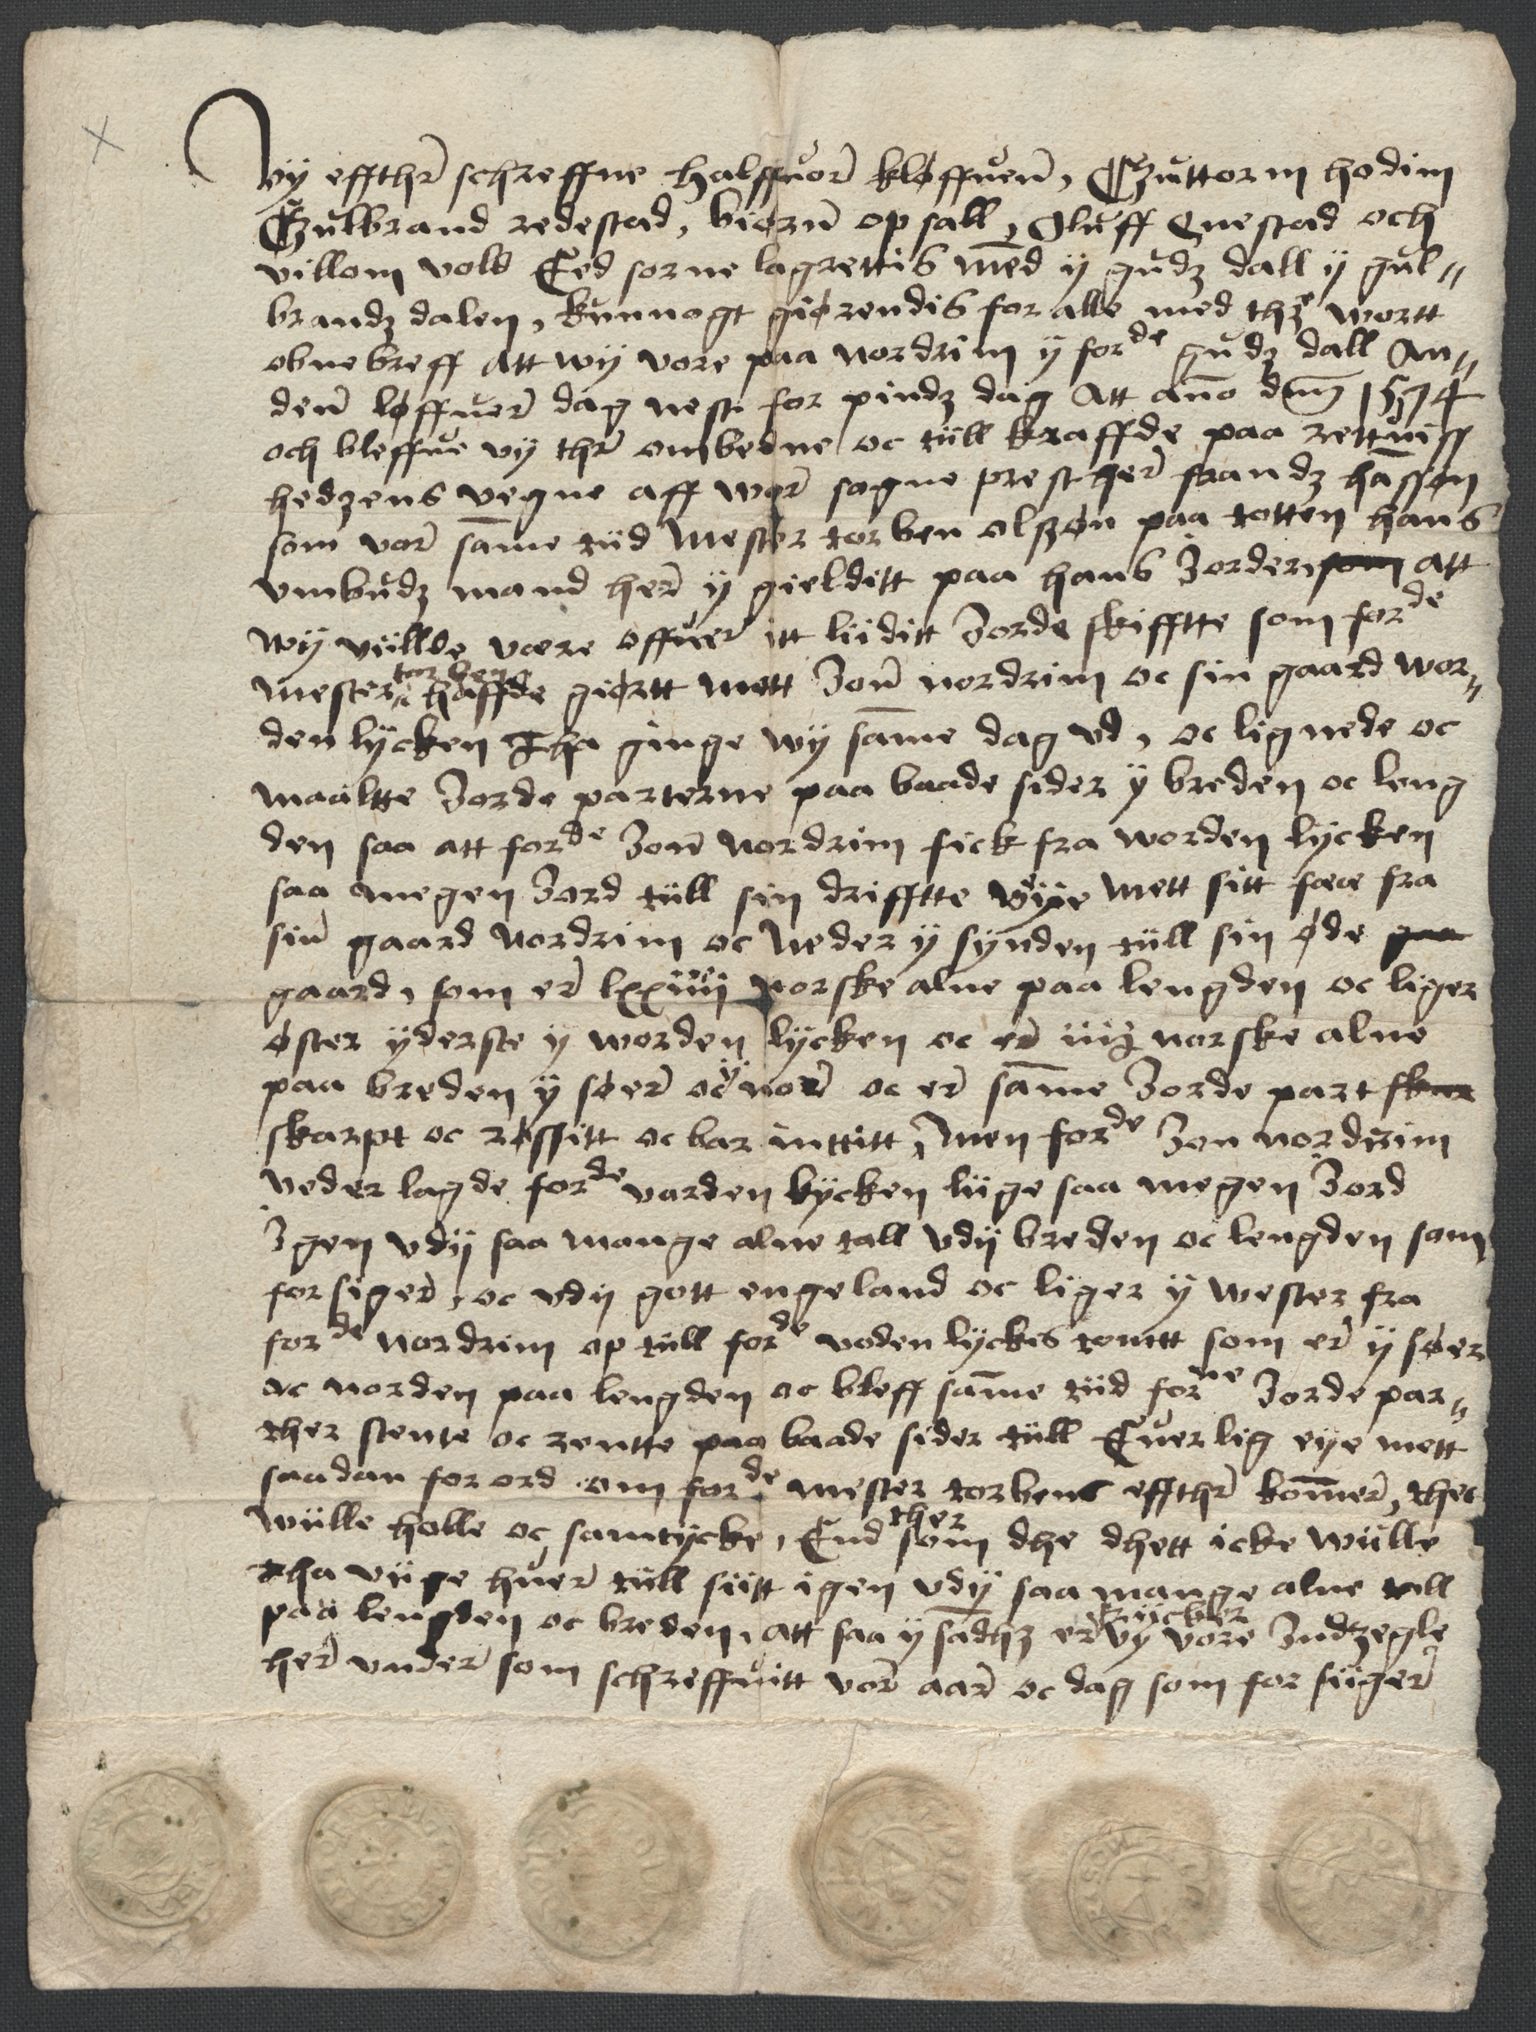 Wy effther̄ schreffne halffuor̄ kløffuen̄, Guttorm hodim
Gulbrand redestad, biørn̄ opsall, Oluff Enestad och
villom vold Edsorne lagrettis med y gudz dall y gul„
brandz dalen, kunnogt giørendis for alle med thz̄ wortt
obne breff Att wy vore paa Nordrim y forde gudz dall An„
den̄ løffuer dag nest for pindz dag Att an̄o dm̄ 1574
och bleffue vy ther ombedne oc tüll kraffde paa rettuiss
hedzens vegne aff wor̄ sogne prest her̄ frandz hansson
som vor̄ sam̄e tüd Mester torben olszøn paa totten hans
vmbudz mand her̄ y gielditt paa hans Jorder, som att
wy vüllde være offuer itt lüditt Jorde skifftte som forde
mester torben haffde giortt mett Jon̄ nordrim oc sin gaard wor„
den lycken Tha ginge wy sam̄e dag vd, oc lignede oc
maaltte Jorde parterne paa baade sider y breden oc leng
den saa att forde Jon̄ Nordrim fick fra worden lycken
saa megen Jord tüll sin drifftte veye mett sitt fææ fra
sin̄ gaard Nordrim oc Neder y synden tüll sin øde gaa
gaard, som er̄ lxxiiij norske alne paa lengden oc liger
øster yderste y worden lycken oc er̄ iiij norske alne
paa breden y søer̄ oc nor̄ oc er̄ sam̄e Jorde part skar
skarpt oc røssitt oc bar inttitt, Men forde Jon nordrim
neder lagde forde varden lycken lüge saa megen Jord
Jgen vdy saa mange alne tall vdy breden oc lengden som
for siger, oc vdy gott engeland oc liger y wester fra
forde Nordrim op tüll forde voden lyckes tomtt som er̄ y søer
oc norden paa lengden oc bleff sam̄e tüd forne Jorde par„
ther stente oc rentte paa baade sider tüll Euerlig eye mett
saadan for ord om forde mester torbens effther̄ kom̄er, thet
wülle holle oc samtycke, End ther som dhe dhett icke wülle
tha vüge huer tüll sütt igen vdy saa mange alne tall
paa lengden oc breden, att saa y sādhz er̄ trycker vy vore Jndzegle
her̄ vnder̄ som schreffuitt vor̄ aar̄ oc dag som for süger̄